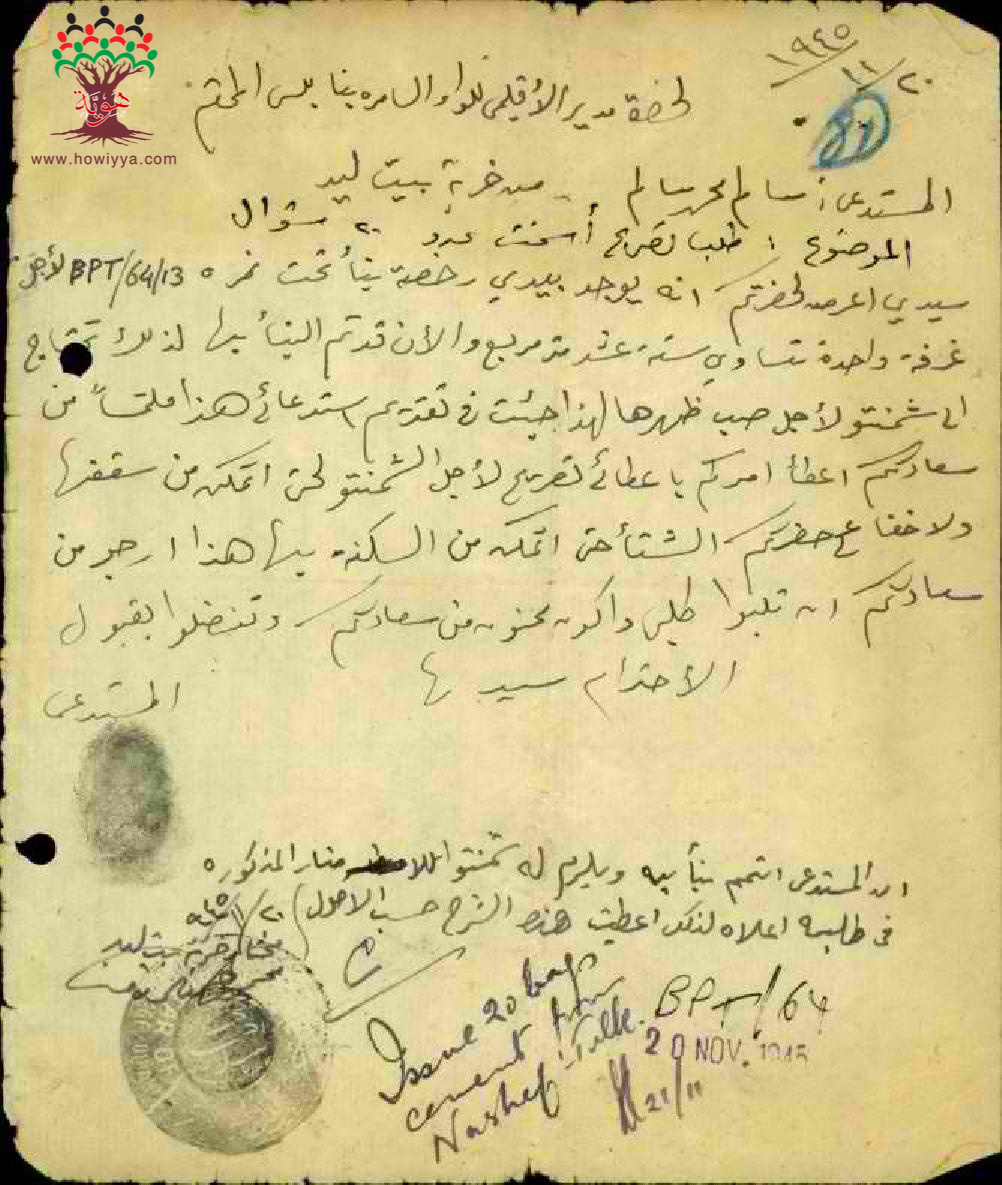 هوية
www.howiyya.com
١٩٤٥/١١/٢٠
لحضرة مدير الأقليمي للواء السامره بنابلس المحترم
المستدعي : سالم محمد سالم من خربة بيت ليد
الموضوع : طلب تصريح أسمنت عدد ٢٠ شوال
سيدي اعرض لحضرتكم انه يوجد بيدي رخصة بنأ تحت نمره BPT/64/13 لأجل
غرفة واحدة تساوي ستة عشر متر مربع والأن قد تم البنأ بها لذلك تحتاج
الى شمنتو لأجل صب ظهرها لهذا جيئت في تقديم استدعائي هذا ملتمساً من
سعادتكم اعطأ امركم باعطائي تصريح لأجل الشمنتو لحتى اتمكن من سقفها
ولا خفا ع حضرتكم الشتأ حتى اتمكن من السكنه بها هذا ارجو من
سعادتكم ان تلبوا طلبي واكون ممنون من سعادتكم وتفضلوا بقبول
الاحترام سيدي
المستدعي
ان المستدعي اتمم بنأ بيته ويلزم له شمنتو المذكوره
في طلبه اعلاه لذلك اعطيت هذا الشرح حسب الاصول ٢٠/١١/٩٤٥
مختار خربة بيت ليد
Issue 20 bags
cement from
Nashef - Tulk.
BPT/64
20 NOV. 1945
21/11